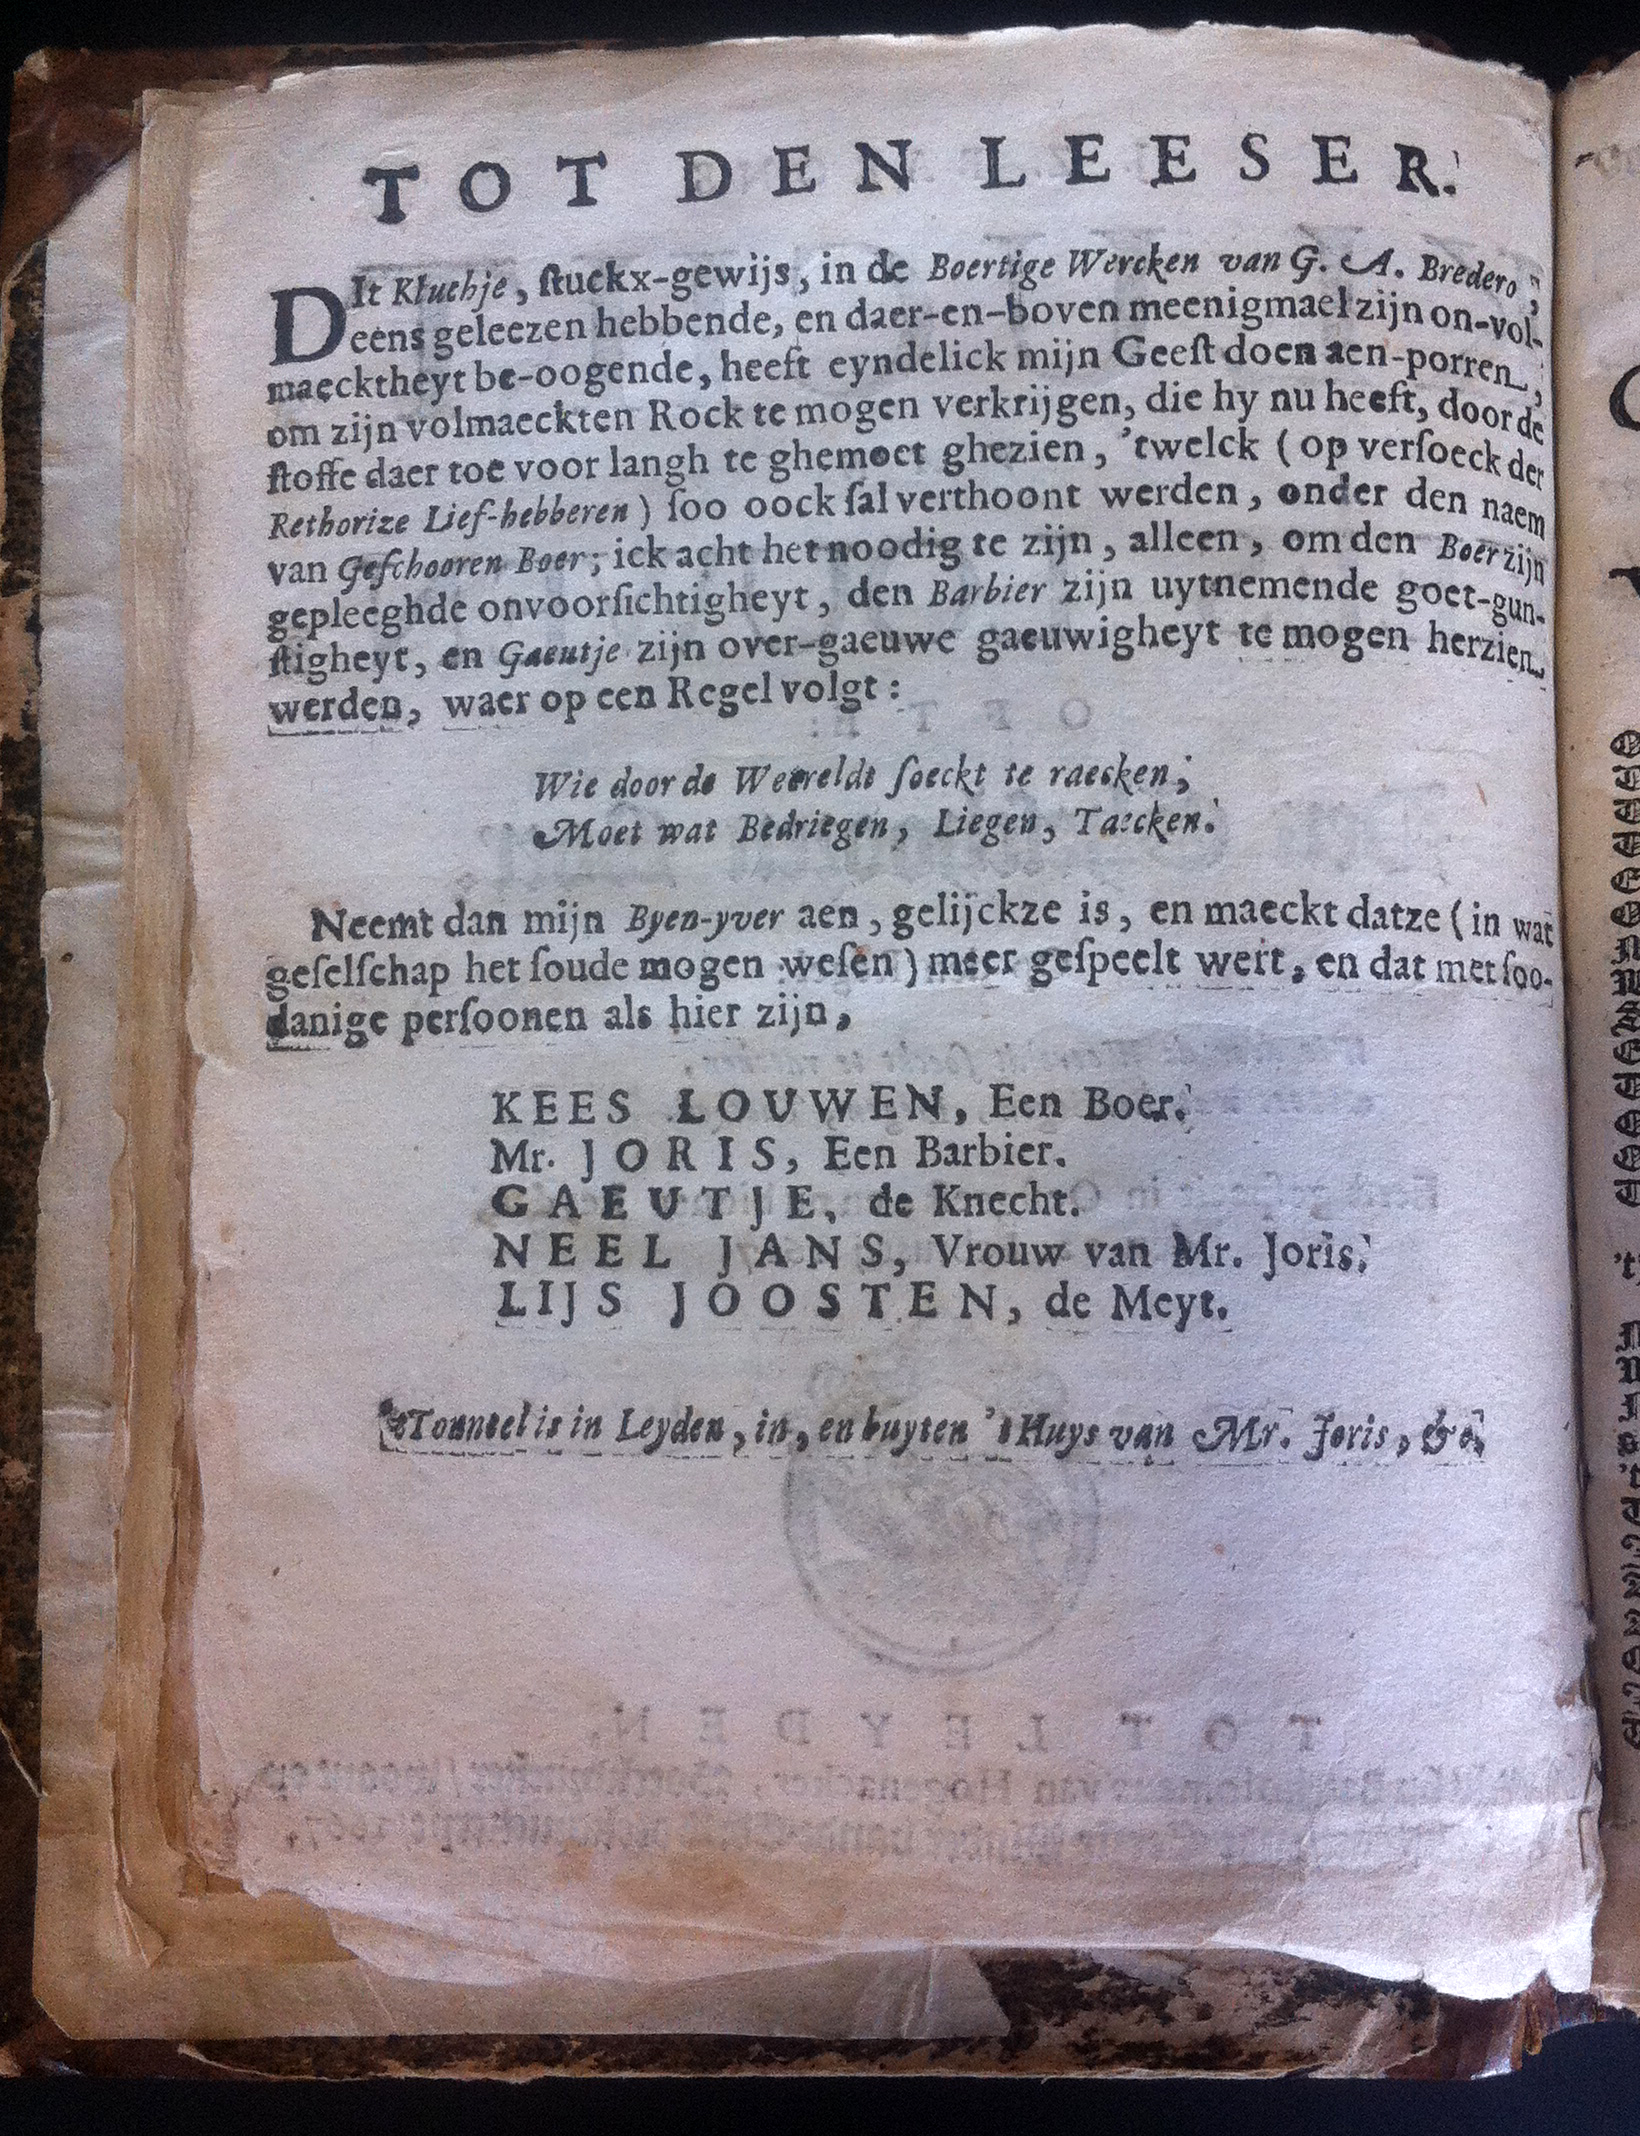 TOT DEN LEESER.
DIt Kluchje, ſtuckx-gewijs, in de Boertige Wercken van G. A. Bredero,
eens geleezen hebbende, en daer-en-boven meenigmael zijn on-vol-
maecktheyt be-oogende, heeft eyndelick mijn Geeſt doen aen-porren,
om zijn volmaeckten Rock te mogen verkrijgen, die hy nu heeft, door de
ſtoffe daer toe voor langh te ghemoet ghezien, 'twelck (op verſoeck der
Rethorize Lief-hebberen) ſoo oock ſal verthoont werden, onder den naem
van Geſchooren Boer; ick acht het noodig te zijn, alleen, om den Boer zijn
gepleeghde onvoorſichtigheyt, den Barbier zijn uytnemende goet-gun-
ſtigheyt, en Gaeutje zijn over-gaeuwe gaeuwigheyt te mogen herzien
werden, waer op een Regel volgt:
Wie door de Weereldt ſoeckt te raecken,
Moet wat Bedriegen, Liegen, Taecken.
Neemt dan mijn Byen-yver aen, gelijckze is, en maeckt datze (in wat
geſelſchap het ſoude mogen weſen) meer geſpeelt wert, en dat met ſoo-
danige perſoonen als hier zijn,
KEES LOUWEN, Een Boer.
Mr. JORIS, Een Barbier.
GAEUTJE, de Knecht.
NEEL JANS, Vrouw van Mr. Joris.
LIJS JOOSTEN, de Meyt.
'tTonneel is in Leyden, in, en buyten 't Huys van Mr. Joris, &c.